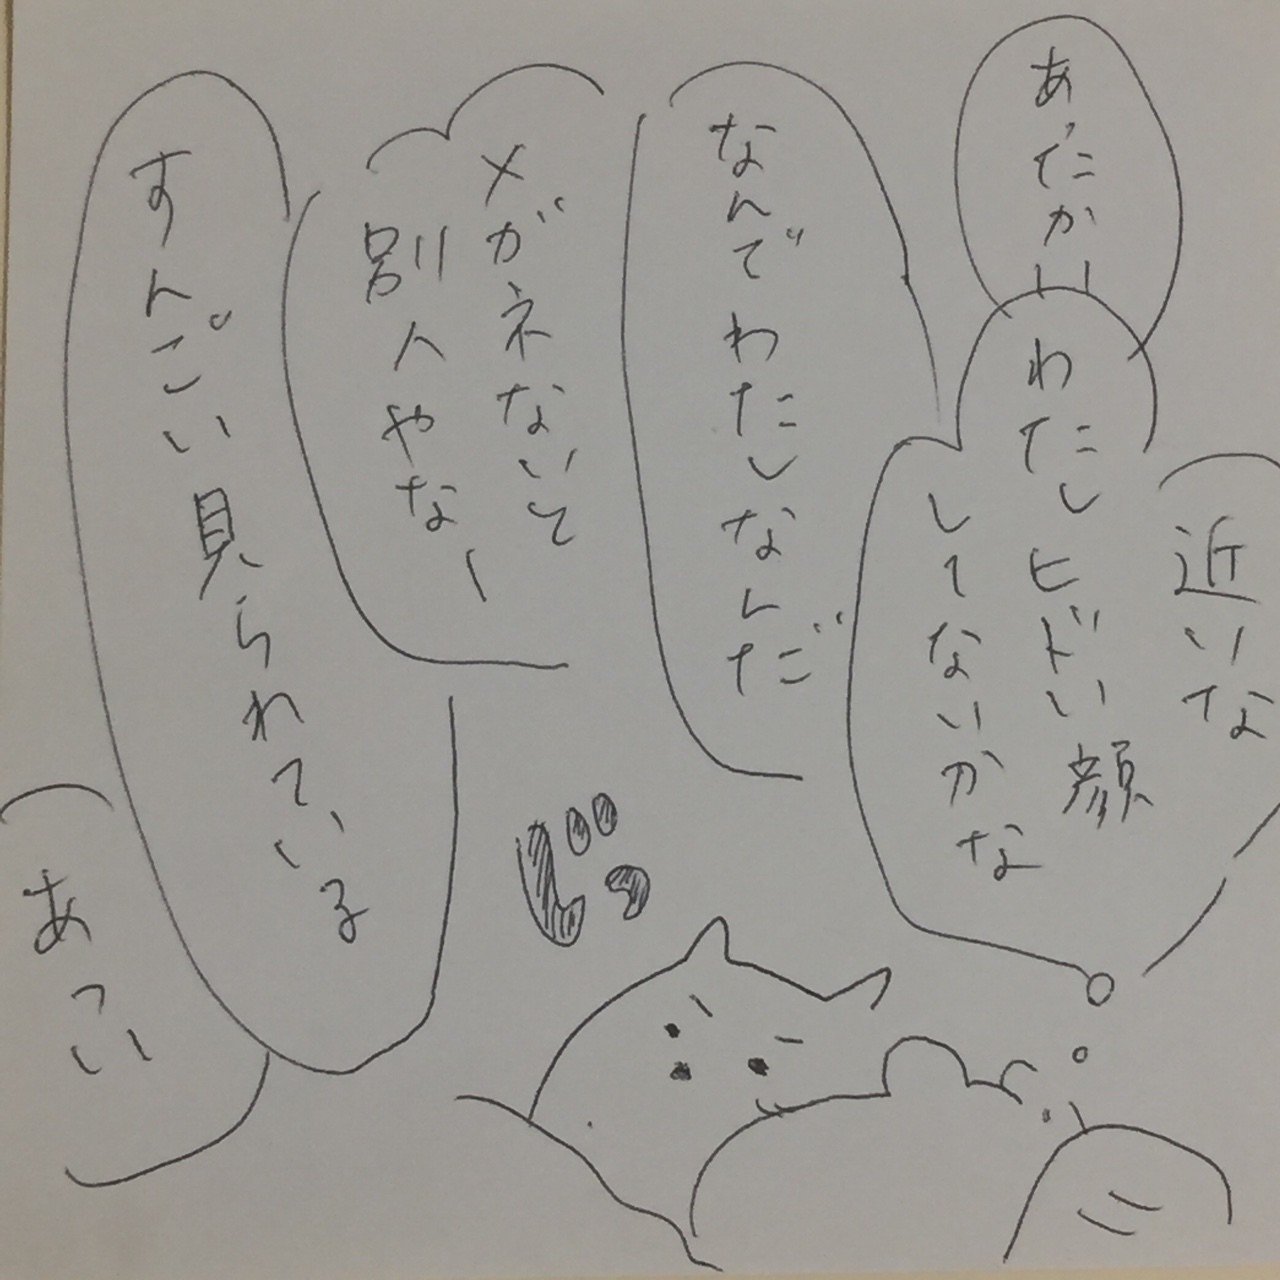 あったかい
近いな
わたしヒドい顔
してないかな
なんでわたしなんだ
メガネないと
別人やなー
じっ
すんごい見られている
あつい